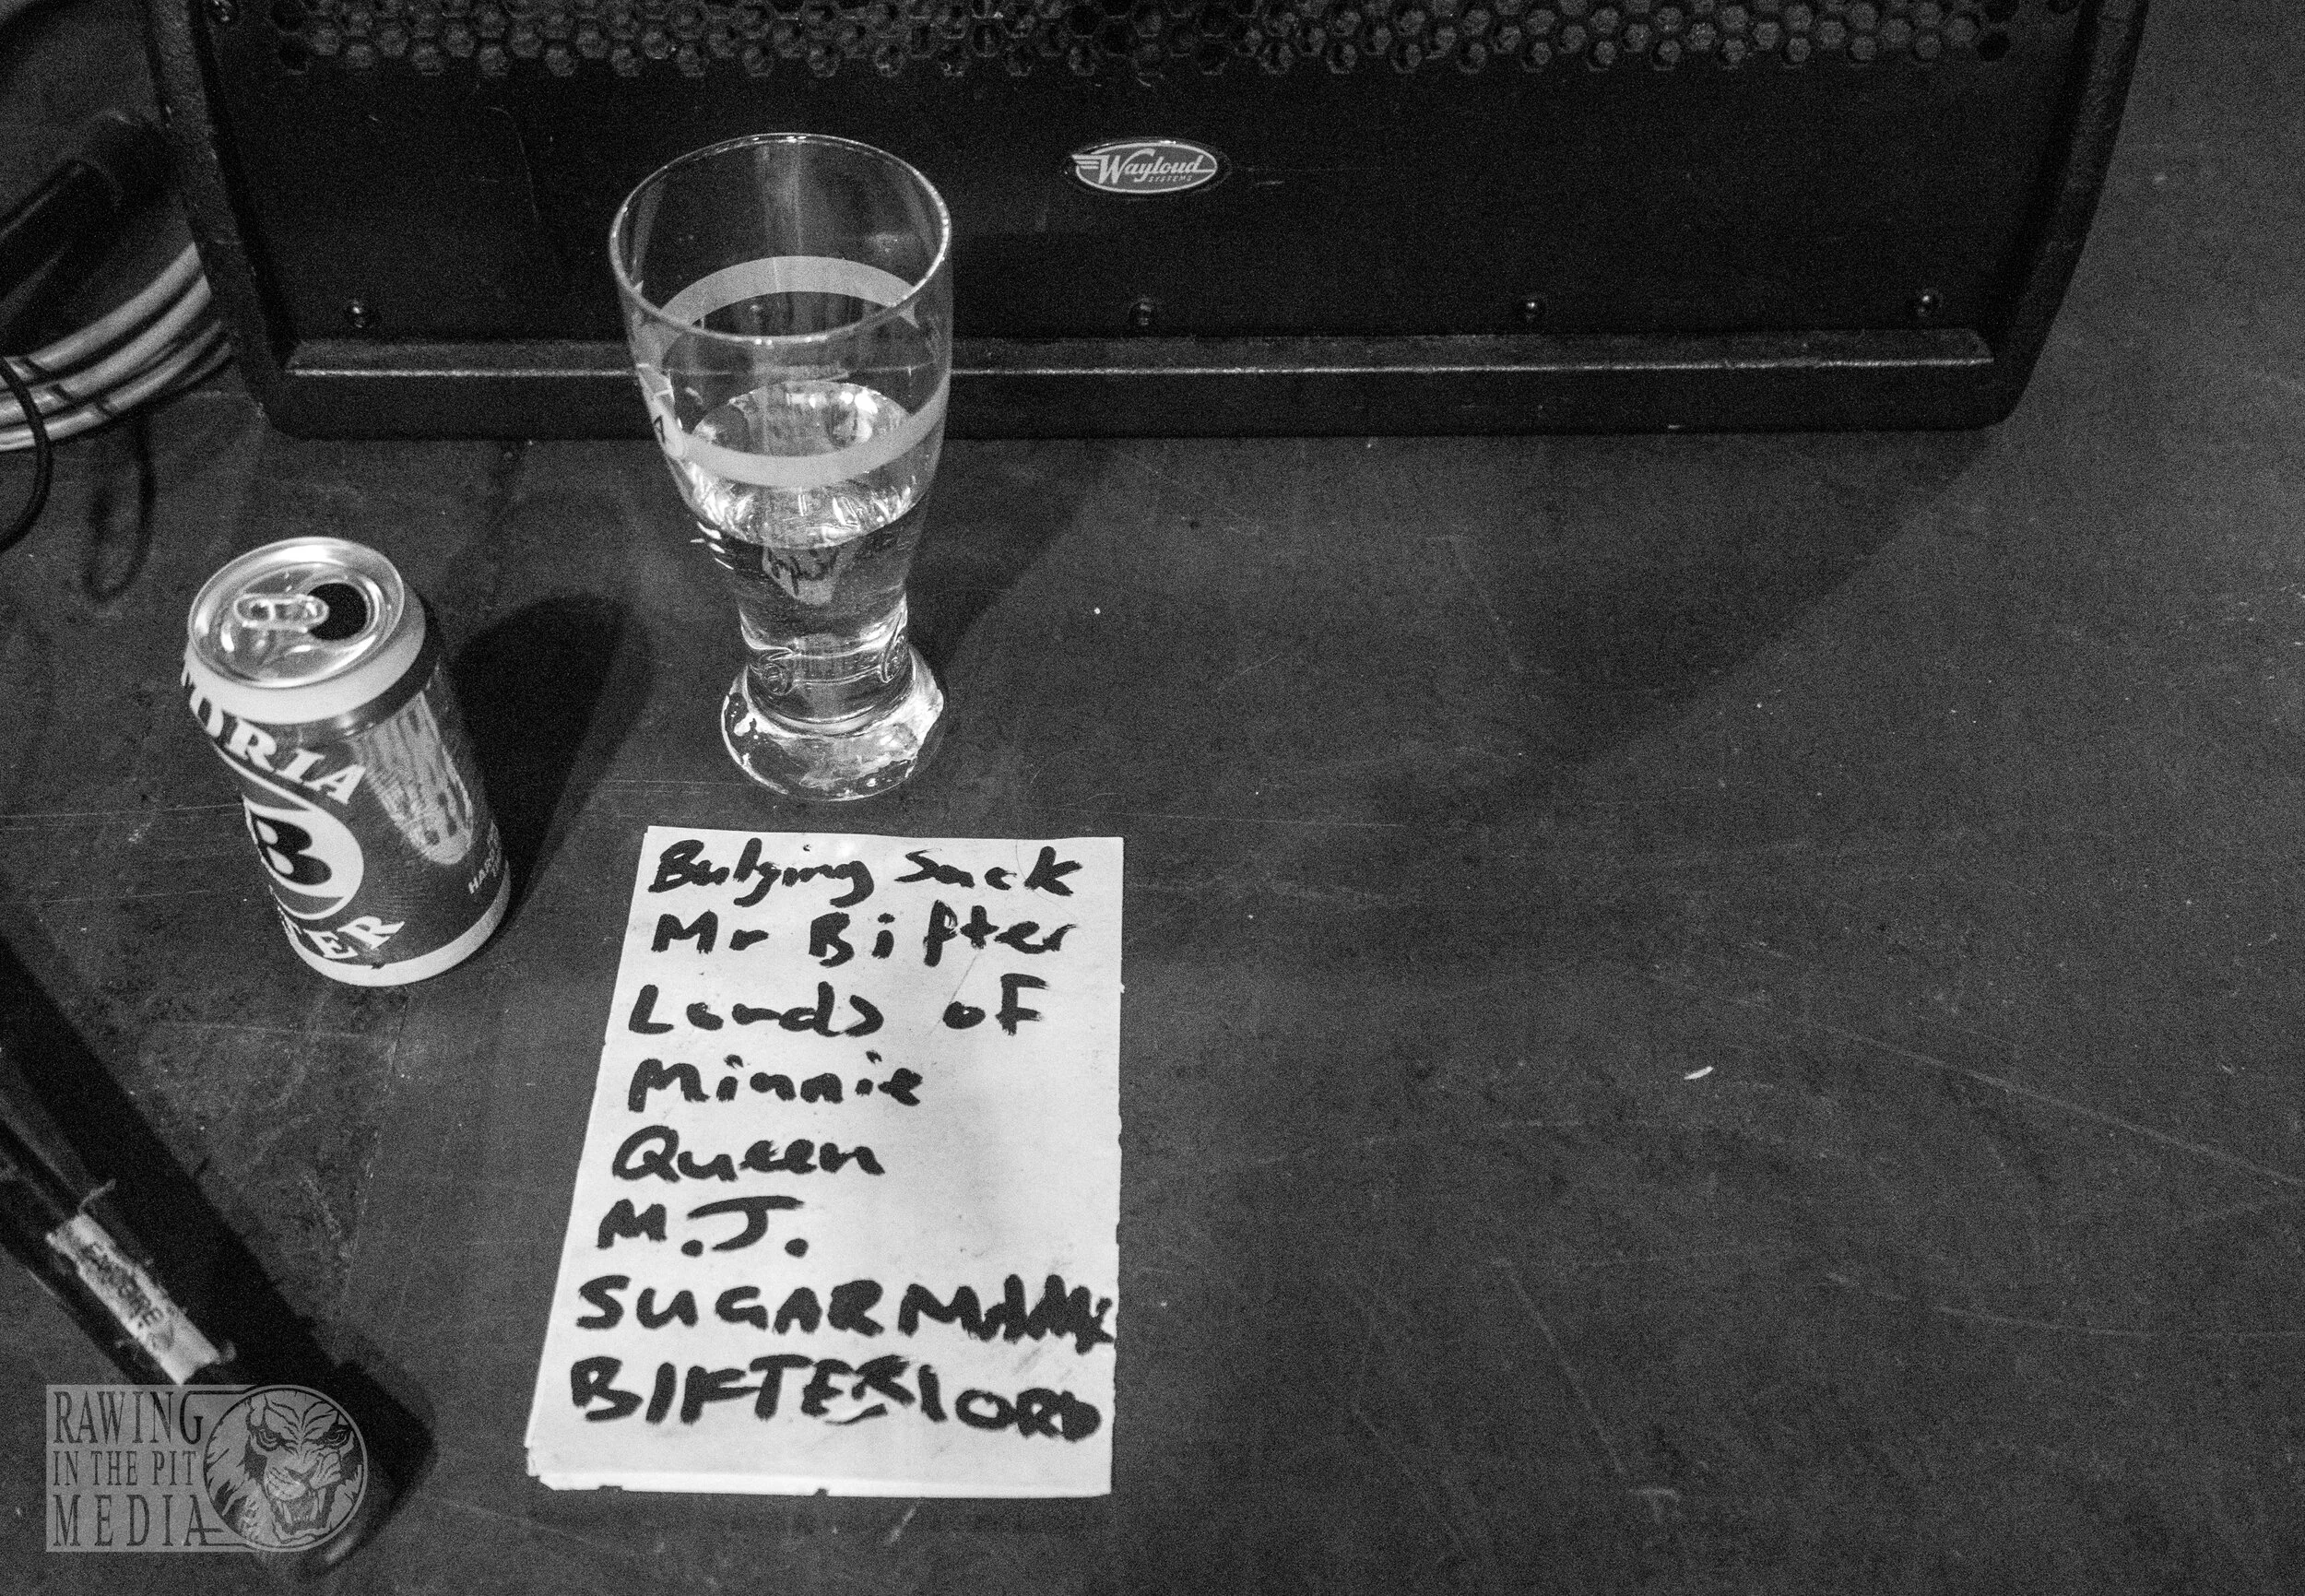 Wayloud
SYSTEMS
TORIA
B
TER
Bulging Sack
Mr Bifter
Lords of
Minnie
Queen
M.J.
SUGARMAN
BIFTERLORD
RAWING
IN THE PIT
MEDIA